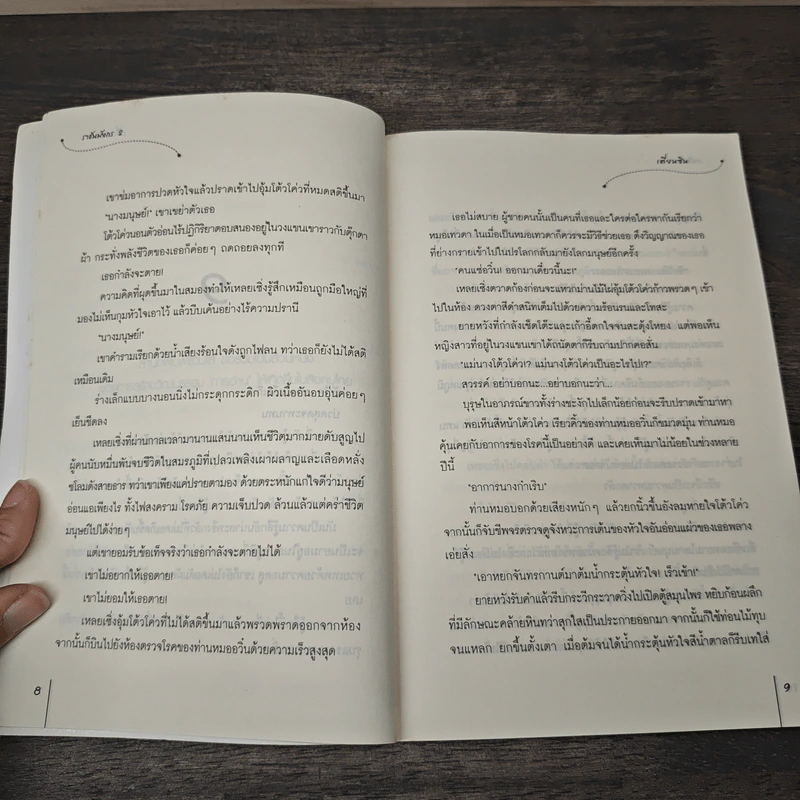 ราชันมังกร 2
เขาข่มอาการปวดหัวใจแล้วปราดเข้าไปอุ้มโต้วโค่วที่หมดสติขึ้นมา
"นางมนุษย์!" เขาเขย่าตัวเธอ
โต้วโค่วนอนตัวอ่อนไร้ปฏิกิริยาตอบสนองอยู่ในวงแขนเขาราวกับตุ๊กตา
ผ้า กระทั่งพลังชีวิตของเธอก็ค่อยๆ ถดถอยลงทุกที
เธอกำลังจะตาย!
ความคิดที่ผุดขึ้นมาในสมองทำให้เหลยเซิ่งรู้สึกเหมือนถูกมือใหญ่ที่
มองไม่เห็นกุมหัวใจเอาไว้ แล้วบีบเค้นอย่างไร้ความปรานี
"นางมนุษย์!"
เขาคำรามเรียกด้วยน้ำเสียงร้อนใจดังถูกไฟลน ทว่าเธอก็ยังไม่ได้สติ
เหมือนเดิม
ร่างเล็กแบบบางนอนนิ่งไม่กระดุกกระดิก ผิวเนื้ออันอบอุ่นค่อยๆ
เย็นชืดลง
เหลยเซิ่งที่ผ่านกาลเวลามานานแสนนานเห็นชีวิตมากมายดับสูญไป
ผู้คนนับหมื่นพันจบชีวิตในสมรภูมิที่เปลวเพลิงเผาผลาญและเลือดหลั่ง
ชโลมดังสายธาร ทว่าเขาเพียงแค่ปรายตามอง ด้วยตระหนักแก่ใจดีว่ามนุษย์
อ่อนแอเพียงไร ทั้งไฟสงคราม โรคภัย ความเจ็บปวด ล้วนแล้วแต่คร่าชีวิต
มนุษย์ไปได้ง่ายๆ
แต่เขายอมรับข้อเท็จจริงว่าเธอกำลังจะตายไม่ได้
เขาไม่อยากให้เธอตาย!
เขาไม่ยอมให้เธอตาย!
เหลยเซิ่งอุ้มโต้วโค่วที่ไม่ได้สติขึ้นมาแล้วพรวดพราดออกจากห้อง
จากนั้นก็บินไปยังห้องตรวจโรคของท่านหมออวิ๋นด้วยความเร็วสูงสุด
8
เตี่ยนซิน
เธอไม่สบาย ผู้ชายคนนั้นเป็นคนที่เธอและใครต่อใครพากันเรียกว่า
หมอเทวดา ในเมื่อเป็นหมอเทวดาก็ควรจะมีวิธีช่วยเธอ ดึงวิญญาณของเธอ
ที่ย่างกรายเข้าไปในปรโลกกลับมายังโลกมนุษย์อีกครั้ง
"คนแซ่อวิ๋น! ออกมาเดี๋ยวนี้นะ!"
เหลยเซิ่งตวาดก้องก่อนจะแหวกม่านไม้ไผ่อุ้มโต้วโค่วก้าวพรวดๆ เข้า
ไปในห้อง ดวงตาสีดำสนิทเต็มไปด้วยความร้อนรนและโทสะ
ยายหวังที่กำลังเช็ดโต๊ะและเก้าอี้ตกใจจนสะดุ้งโหยง แต่พอเห็น
หญิงสาวที่อยู่ในวงแขนเขาได้ถนัดตาก็รีบถามปากคอสั่น
"แม่นางโต้วโค่ว!? แม่นางโต้วโค่วเป็นอะไรไป!?"
สวรรค์ อย่าบอกนะ...อย่าบอกนะว่า...
บุรุษในอาภรณ์ขาวทั้งร่างชะงักไปเล็กน้อยก่อนจะรีบปราดเข้ามาหา
พอเห็นสีหน้าโต้วโค่ว เรียวคิ้วของท่านหมออวิ๋นก็ขมวดมุ่น ท่านหมอ
คุ้นเคยกับอาการของโรคนี้เป็นอย่างดี และเคยเห็นมาไม่น้อยในช่วงหลาย
ปีนี้
"อาการนางกำเริบ"
ท่านหมอบอกด้วยเสียงหนักๆ แล้วยกนิ้วขึ้นอังลมหายใจโต้วโค่ว
จากนั้นก็จับชีพจรตรวจดูจังหวะการเต้นของหัวใจอันอ่อนแผ่วของเธอพลาง
เอ่ยสั่ง
"เอาหยกจันทรกานต์มาต้มน้ำกระตุ้นหัวใจ! เร็วเข้า!"
ยายหวังรับคำแล้วรีบกระวีกระวาดวิ่งไปเปิดตู้สมุนไพร หยิบก้อนผลึก
ที่มีลักษณะคล้ายหินทว่าสุกใสเป็นประกายออกมา จากนั้นก็ใช้ท่อนไม้ทุบ
จนแหลก ยกขึ้นตั้งเตา เมื่อต้มจนได้น้ำกระตุ้นหัวใจสีน้ำตาลก็รีบเทใส่
9